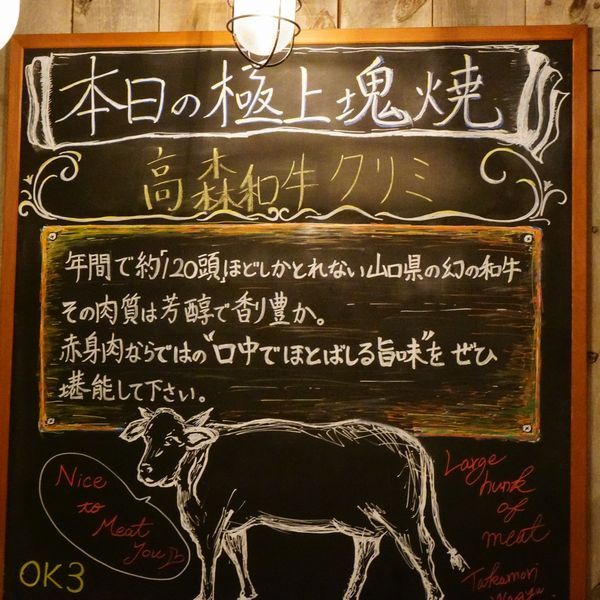 本日の極上塊焼
高森和牛クリミ
年間で約「120頭」ほどしかとれない山口県の幻の和牛
その肉質は芳醇で香り豊か。
赤身肉ならではの"口中でほとばしる旨味"をぜひ
堪能して下さい。
Nice
to
Meat
You
OK3
Large
hunk
of
meat
Takamori
Wagyu